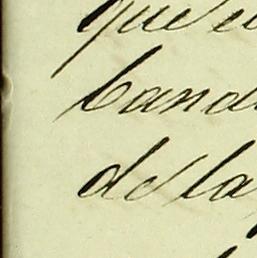 que e
band
de la